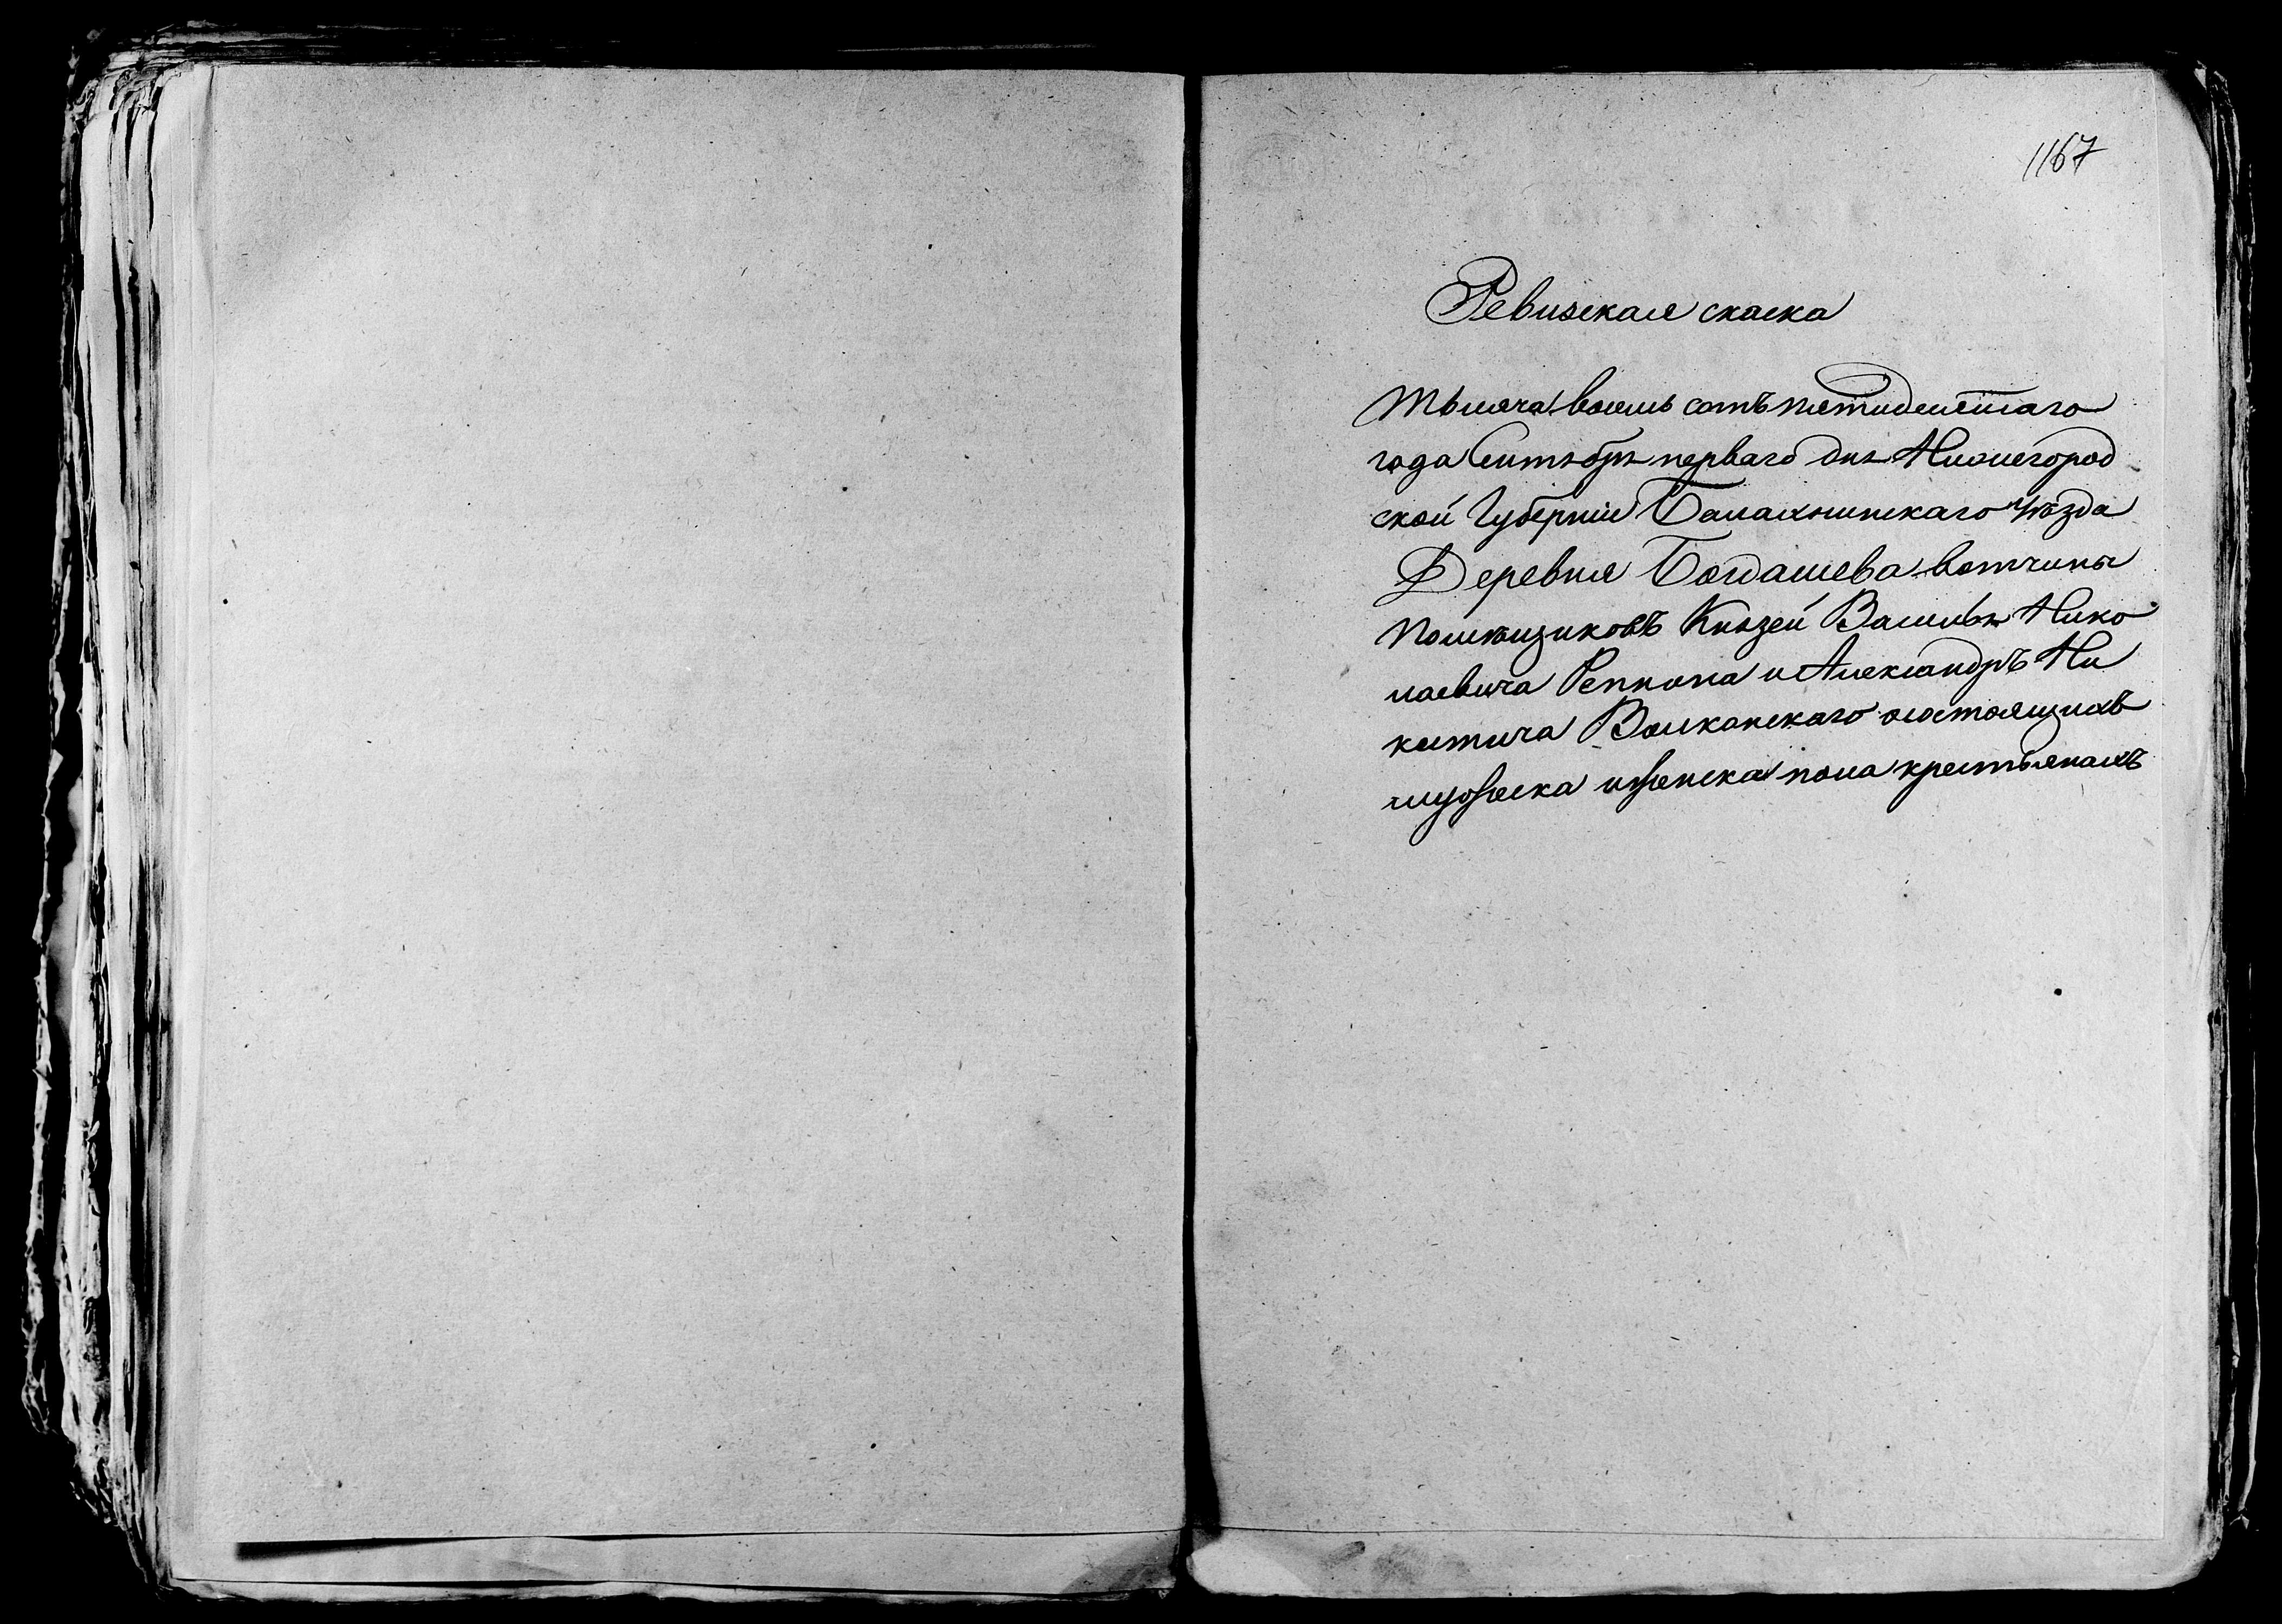 1167
Ревизская скаска
тысяча восемь сотъ пятидесятаго
года Сентября перваго дня Нижегород
ской Губерніи Балахнинскаго Уѣзда
Деревня Богдашева вотчины
помѣщиковъ Князей Василья Нико
лаевича Репнина и Александръ Ни
китича Волконскаго осостоящихъ
мужеска иженска пола крестьянахъ